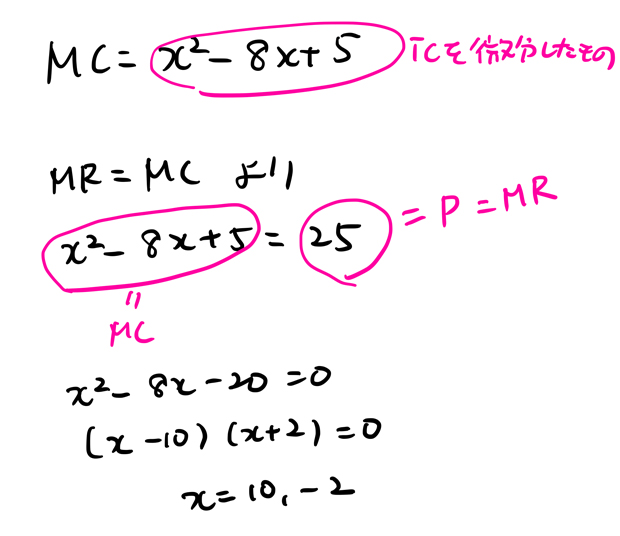 MC = x² - 8x + 5 TCを微分したもの
MR = MC より
x² - 8x + 5 = 25 = P = MR
〃
MC
x² - 8x - 20 = 0
(x - 10) (x + 2) = 0
x = 10, - 2